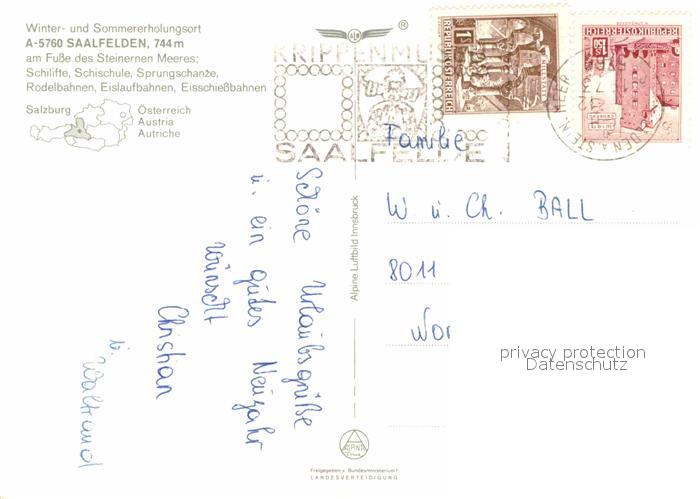 Winter- und Sommererholungsort
A-5760 SAALFELDEN, 744 m
am Fuße des Steinernen Meeres;
Schilifte, Schischule, Sprungschanze,
Rodelbahnen, Eislaufbahnen, Eisschießbahnen
Salzburg
Österreich
Austria
Autriche
®
KRIPPENMU
SAALFELDE
1S
REPUBLIK ÖSTERREICH
1.50 S
REPUBLIK ÖSTERREICH
Familie
W u. Ch. BALL
8011
Wor
privacy protection
Datenschutz
Schöne Urlaubsgrüße
u. ein gutes Neujahr
wünscht
Christian
u. Waltraud
Alpine Luftbild Innsbruck
ALPINE
Freigegeben v. Bundesministerium f.
LANDESVERTEIDIGUNG